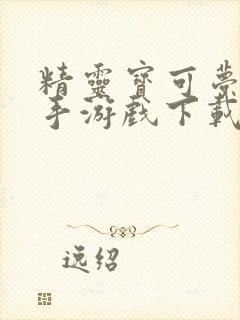 精靈寶可夢
手游戲下載
逸绍